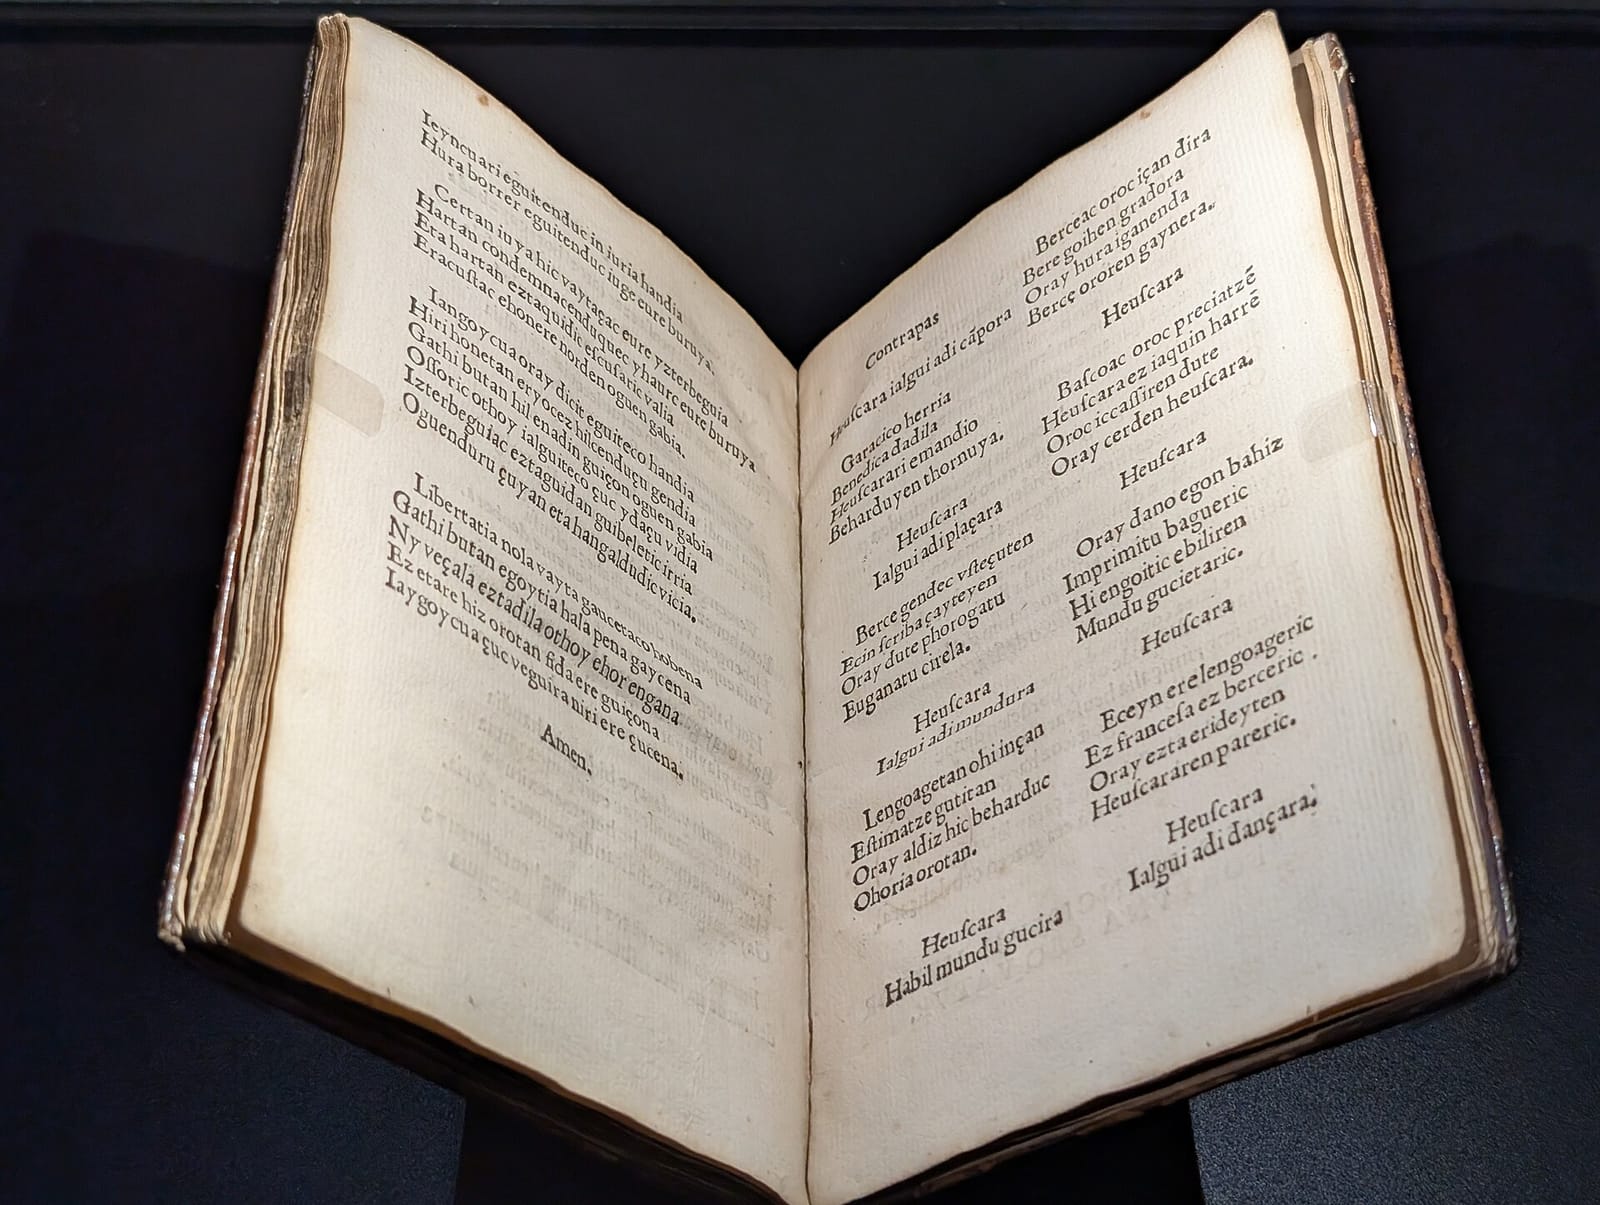 Ieyncuari eguitenduc in iuria handia
Hura borrer eguitenduc iuge eure buruya.
Certan iuya hic vaytaçac eure yzterbeguia
Hartan condemnacenduquec yhaurc eure buruya
Eta hartan eztaquidic eſcuſaric valia
Eracuſtac ehonere norden oguen gabia.
Iangoycua oray dicit eguiteco handia
Hiri honetan eryocez hilcenduçu gendia
Gathi butan hil enadin guiçon oguen gabia
Oſſoric othoy ialguiteco çuc ydaçu vidia
Izterbeguiac eztaguidan guibeletic irria
Oguenduru çuyan eta hangaldudic vicia.
Libertatia nola vayta gaucetaco hobena
Gathi butan egoytia hala pena gaycena
Ny veçala eztadila othoy ehor engana
Ez etare hiz orotan fida ere guiçona
Iaygoycua çuc veguira niri ere çucena.
Amen.
Contrapas
Heuſcara ialgui adi cãpora
Garacico herria
Benedica dadila
Heuſcarari emandio
Beharduyen thornuya.
Heuſcara
Ialgui adi plaçara
Berce gendec vſteçuten
Ecin ſcriba çayteyen
Oray dute phorogatu
Euganatu cirela.
Heuſcara
Ialgui adi mundura
Lengoagetan ohi inçan
Eſtimatze gutitan
Oray aldiz hic beharduc
Ohoria orotan.
Heuſcara
Habil mundu gucira
Berceac oroc içan dira
Bere goihen gradora
Oray hura iganenda
Berce ororen gaynera.
Heuſcara
Baſcoac oroc preciatzẽ
Heuſcara ez iaquin harrẽ
Oroc iccaſſiren dute
Oray cerden heuſcara.
Heuſcara
Oray dano egon bahiz
Imprimitu bagueric
Hi engoitic ebiliren
Mundu gucietaric.
Heuſcara
Eceyn ere lengoageric
Ez franceſa ez berceric.
Oray ezta erideyten
Heuſcararen pareric.
Heuſcara
Ialgui adi dançara.